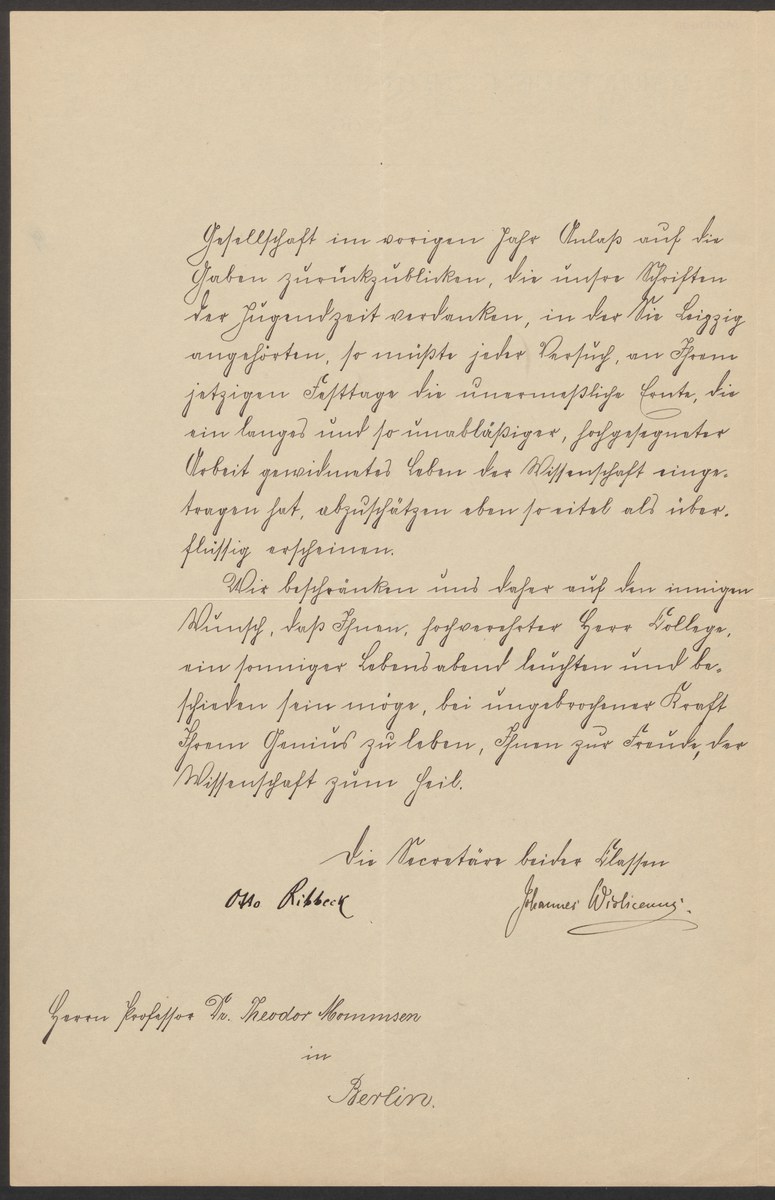 Gesellschaft im vorigen Jahr Anlaß auf die
Gaben zurückzublicken, die unsre Schriften
der Jugendzeit verdanken, in der Sie Leipzig
angehörten, so müßte jeder Versuch, an Ihrem
jetzigen Festtage die unermeßliche Ernte, die
ein langes und so unabläßiger, hochgesegneter
Arbeit gewidmetes Leben der Wissenschaft einge-
tragen hat, abzuschätzen eben so eitel als über-
flüssig erscheinen.
Wir beschränken uns daher auf den innigen
Wunsch, daß Ihnen, hochverehrter Herr College,
ein sonniger Lebensabend leuchten und be-
schieden sein möge, bei ungebrochener Kraft
Ihrem Genius zu leben, Ihnen zur Freude, der
Wissenschaft zum Heil.
Die Secretäre beider Classen
Otto Ribbeck Johannes Wislicenus.
Herrn Professor Dr. Theodor Mommsen
in
Berlin.